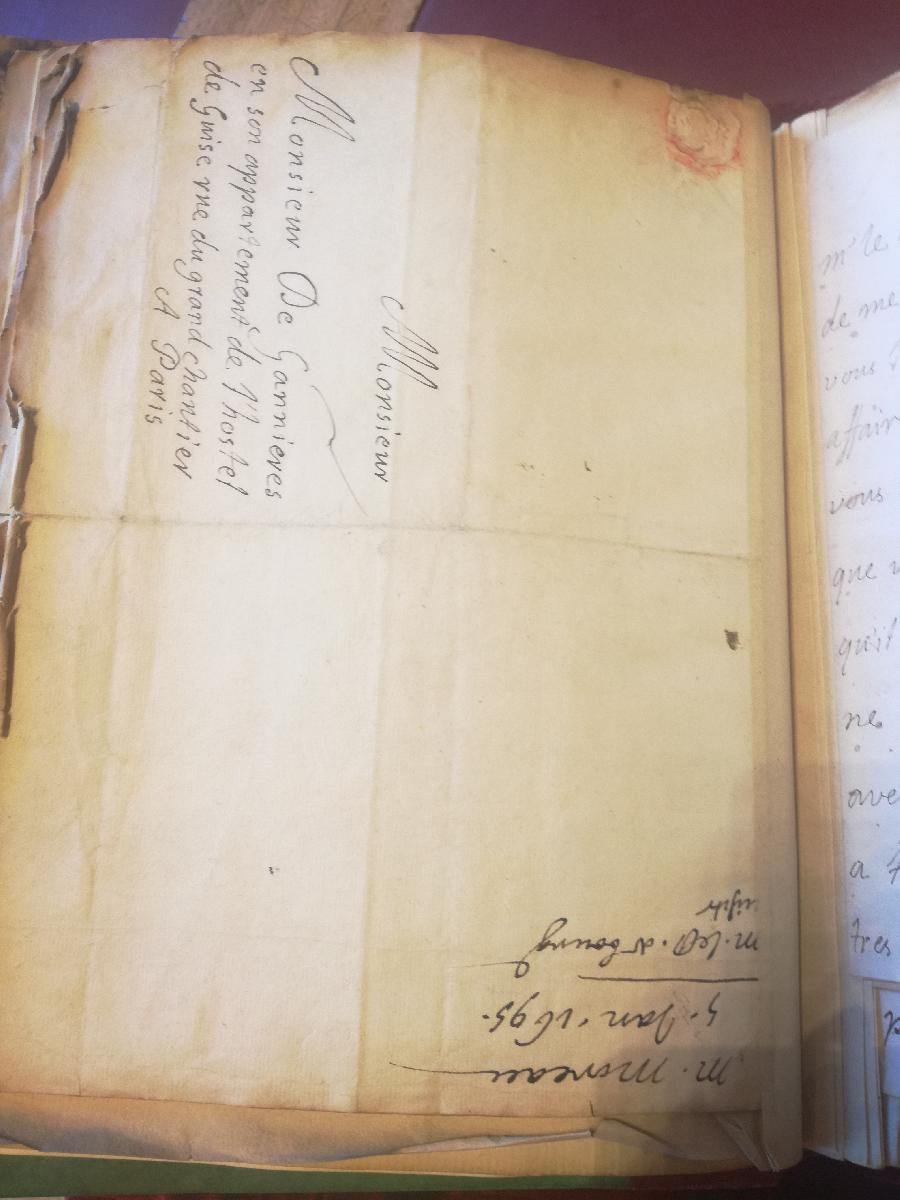 Monsieur
Monsieur De Gannieres
en son appartement de l'hostel
de Guise rue du grand chantier
A Paris
m. moreau
5. Jan. 1695.
m. le
m' le
de me
vous
affair
vous
que
qu'il
ne
ave
a
tres